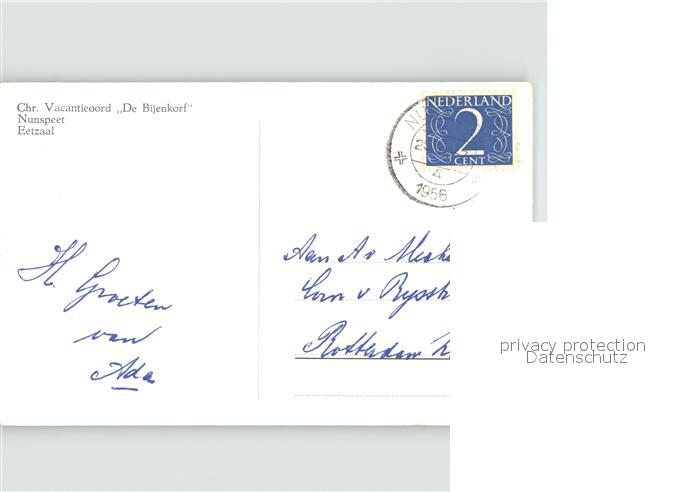 Chr. Vacantieoord „De Bijenkorf"
Nunspeet
Eetzaal
NEDERLAND
2
CENT
4
1956
H. Groeten
van
Ada
Aan
Corn v
Rotterdam
privacy protection
Datenschutz